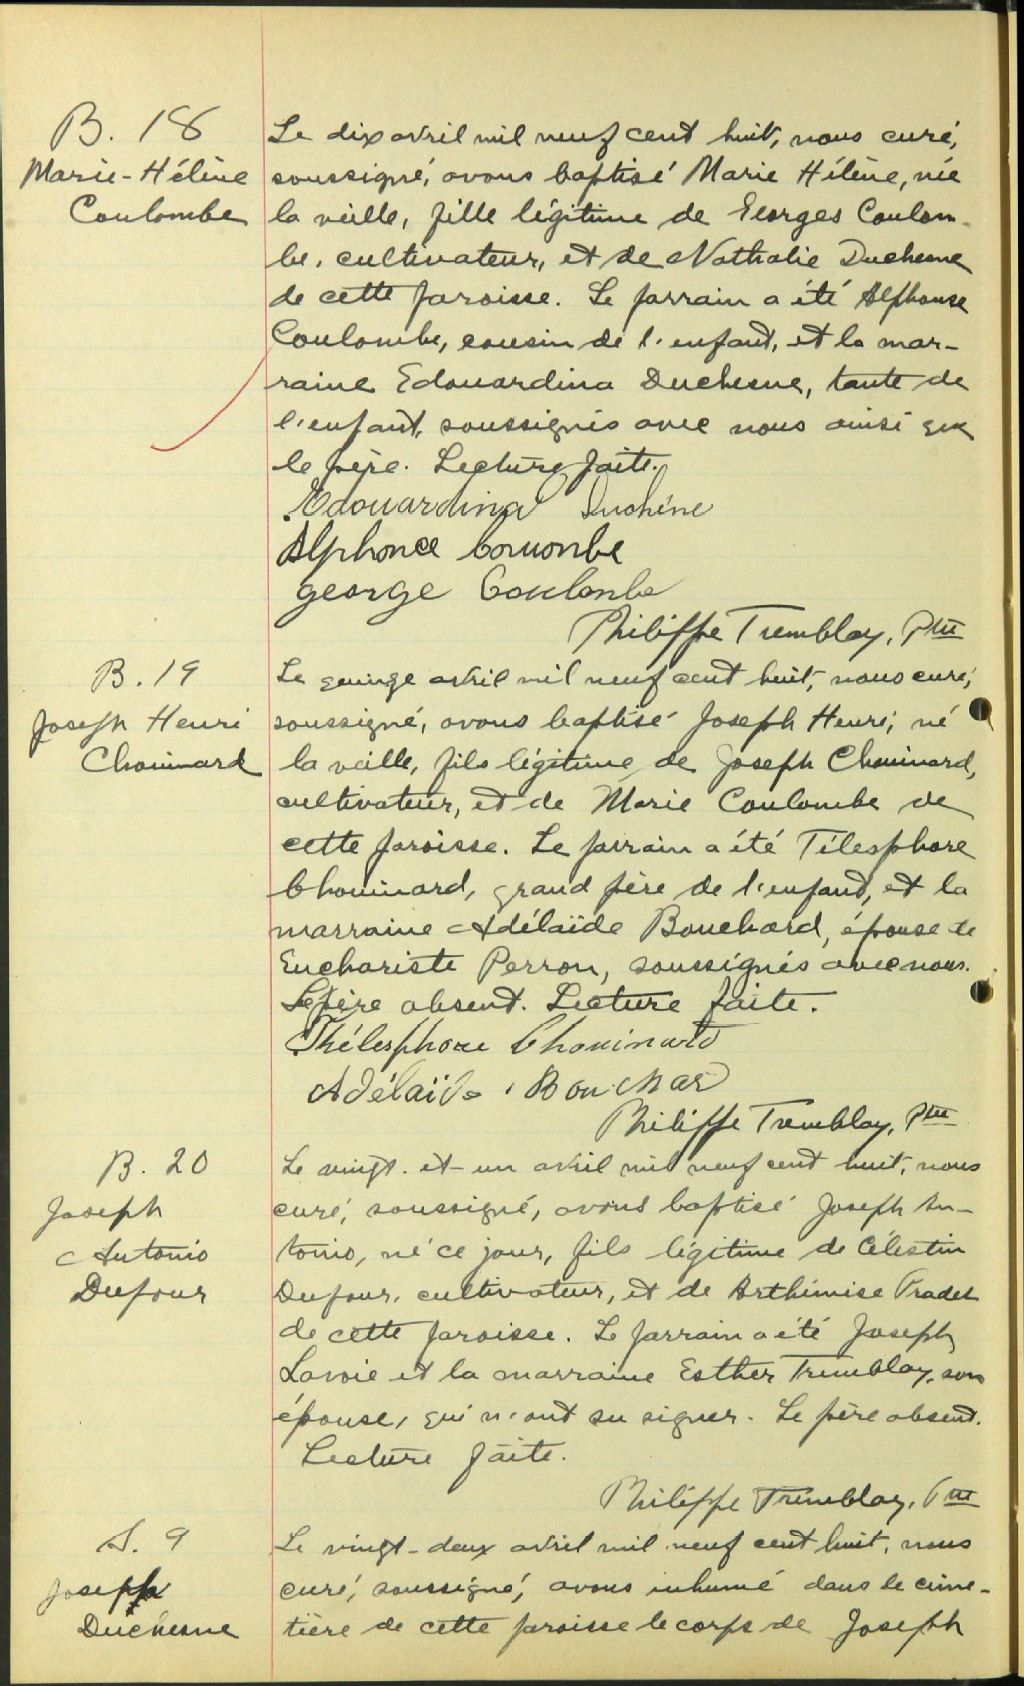 B. 18
Marie-Hélène
Coulombe
Le dix avril mil neuf cent huit, nous curé,
soussigné, avons baptisé Marie Hélène, née
la veille, fille légitime de Georges Coulom-
be, cultivateur, et de Nathalie Duchesne
de cette paroisse. Le parrain a été Alphonse
Coulombe, cousin de l'enfant, et la mar-
raine Edouardina Duchesne, tante de
l'enfant, soussignés avec nous ainsi que
le père. Lecture faite.
Edouardina Duchéne
Alphonce Coulombe
george Coulonbe
Philippe Tremblay, Ptre
B. 19
Joseph Henri
Chouinard
Le quinze avril mil neuf cent huit, nous curé,
soussigné, avons baptisé Joseph Henri, né
la veille, fils légitime de Joseph Chouinard,
cultivateur, et de Marie Coulombe de
cette paroisse. Le parrain a été Télesphore
Chouinard, grand père de l'enfant, et la
marraine Adélaïde Bouchard, épouse de
Euchariste Perron, soussignés avec nous.
Le père absent. Lecture faite.
Thélesphore Chouinard
Adélaïde Bouchar
Philippe Tremblay, Ptre
B. 20
Joseph
Antonio
Dufour
Le vingt-et-un avril mil neuf cent huit, nous
curé, soussigné, avons baptisé Joseph An-
tonio, né ce jour, fils légitime de Célestin
Dufour, cultivateur, et de Arthémise Pradet
de cette paroisse. Le parrain a été Joseph
Lavoie et la marraine Esther Tremblay, son
épouse, qui n'ont su signer. Le père absent.
Lecture faite.
Philippe Tremblay, Ptre
S. 9
Joseph
Duchesne
Le vingt-deux avril mil neuf cent huit, nous
curé, soussigné, avons inhumé dans le cime-
tière de cette paroisse le corps de Joseph